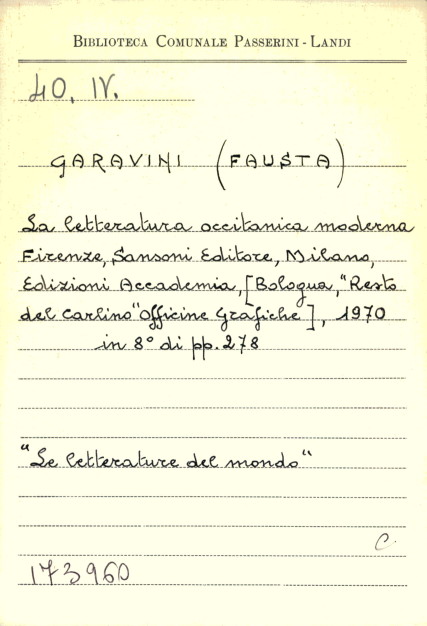 BIBLIOTECA COMUNALE PASSERINI - LANDI
40. IV.
GARAVINI (FAUSTA)
La letteratura occitanica moderna
Firenze, Sansoni Editore, Milano,
Edizioni Accademia, [Bologna, "Resto
del Carlino" Officine Grafiche], 1970
in 8° di pp. 278
"Le letterature del mondo"
C.
173960